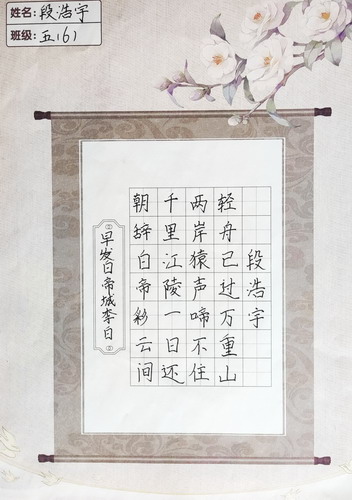 姓名：段浩宇
班级：五（6）
早发白帝城李白
朝辞白帝彩云间
千里江陵一日还
两岸猿声啼不住
轻舟已过万重山
段浩宇